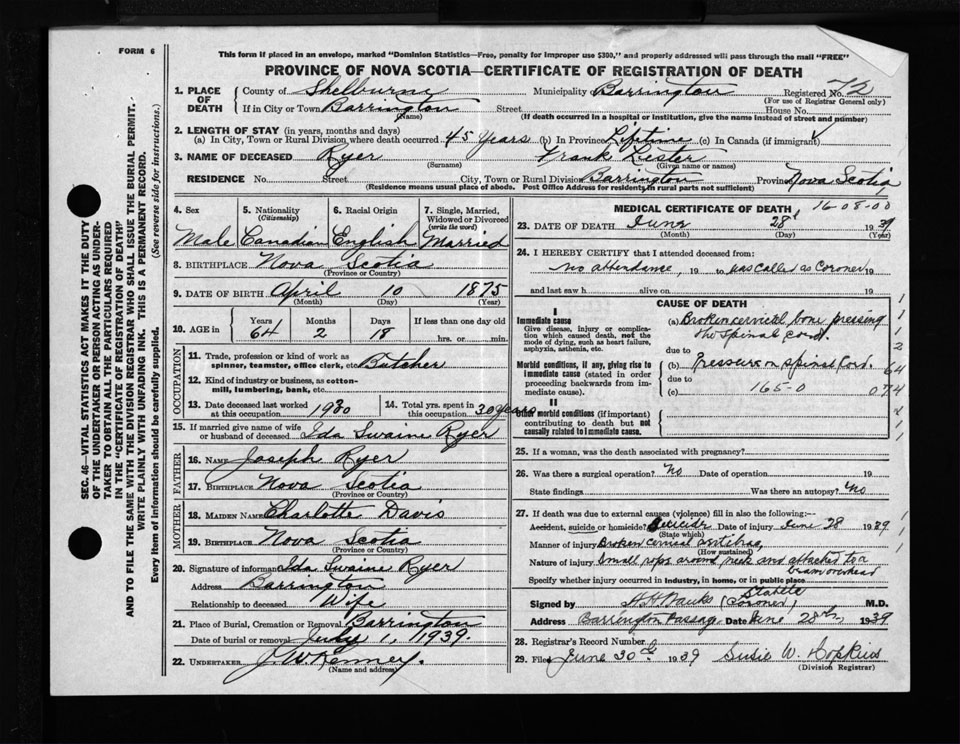 FORM 6
This form if placed in an envelope, marked "Dominion Statistics—Free, penalty for improper use $300," and properly addressed will pass through the mail "FREE"
PROVINCE OF NOVA SCOTIA—CERTIFICATE OF REGISTRATION OF DEATH
SEC. 46—VITAL STATISTICS ACT MAKES IT THE DUTY
OF THE UNDERTAKER OR PERSON ACTING AS UNDER-
TAKER TO OBTAIN ALL THE PARTICULARS REQUIRED
IN THE "CERTIFICATE OF REGISTRATION OF DEATH"
AND TO FILE THE SAME WITH THE DIVISION REGISTRAR WHO SHALL ISSUE THE BURIAL PERMIT.
WRITE PLAINLY WITH UNFADING INK. THIS IS A PERMANENT RECORD.
Every item of information should be carefully supplied. (See reverse side for instructions.)
1. PLACE OF DEATH County of Shelburne Municipality Barrington Registered No. 72
(For use of Registrar General only)
If in City or Town Barrington Street House No.
(Name) (If death occurred in a hospital or institution, give the name instead of street and number)
2. LENGTH OF STAY (in years, months and days)
(a) In City, Town or Rural Division where death occurred 45 Years (b) In Province Lifetime (c) In Canada (if immigrant)
3. NAME OF DECEASED Ryer Frank Lester
(Surname) (Given name or names)
RESIDENCE No. Street City, Town or Rural Division Barrington Province Nova Scotia
(Residence means usual place of abode. Post Office Address for residents in rural parts not sufficient)
4. Sex Male
5. Nationality (Citizenship) Canadian
6. Racial Origin English
7. Single, Married, Widowed or Divorced (write the word) Married
8. BIRTHPLACE Nova Scotia
(Province or Country)
9. DATE OF BIRTH April 10 1875
(Month) (Day) (Year)
10. AGE in Years 64 Months 2 Days 18 If less than one day old hrs. or min.
OCCUPATION
11. Trade, profession or kind of work as spinner, teamster, office clerk, etc. Butcher
12. Kind of industry or business, as cotton-mill, lumbering, bank, etc.
13. Date deceased last worked at this occupation 1930
14. Total yrs. spent in this occupation 30 years
15. If married give name of wife or husband of deceased Ida Swaine Ryer
FATHER
16. NAME Joseph Ryer
17. BIRTHPLACE Nova Scotia
(Province or Country)
MOTHER
18. MAIDEN NAME Charlotte Davis
19. BIRTHPLACE Nova Scotia
(Province or Country)
20. Signature of informant Ida Swaine Ryer
Address Barrington
Relationship to deceased Wife
21. Place of Burial, Cremation or Removal Barrington
Date of burial or removal July 1, 1939.
22. UNDERTAKER J. W. Kenney.
(Name and address)
MEDICAL CERTIFICATE OF DEATH 16-08-00
23. DATE OF DEATH June 28 1939
(Month) (Day) (Year)
24. I HEREBY CERTIFY that I attended deceased from:
no attendance, 19 to was called as Coroner 19
and last saw h alive on 19
CAUSE OF DEATH
I
Immediate cause
Give disease, injury or complication which caused death, not the mode of dying, such as heart failure, asphyxia, asthenia, etc.
(a) Broken cervical bone pressing
the Spinal Cord.
due to
Morbid conditions, if any, giving rise to immediate cause (stated in order proceeding backwards from immediate cause).
(b) Pressure on Spinal Cord. 64
due to
(c) 165-0 074
II
Other morbid conditions (if important) contributing to death but not causally related to immediate cause.
25. If a woman, was the death associated with pregnancy?
26. Was there a surgical operation? No Date of operation 19
State findings Was there an autopsy? No
27. If death was due to external causes (violence) fill in also the following:—
Accident, suicide or homicide? Suicide Date of injury June 28 1939
(State which)
Manner of injury Broken
(How sustained)
Nature of injury Small rope around neck and attached to a
beam overhead
Specify whether injury occurred in industry, in home, or in public place Stable
Signed by (Coroner) M.D.
Address Barrington Passage Date June 28th, 1939
28. Registrar's Record Number
29. Filed June 30th 1939 Susie W. Hopkins
(Division Registrar)